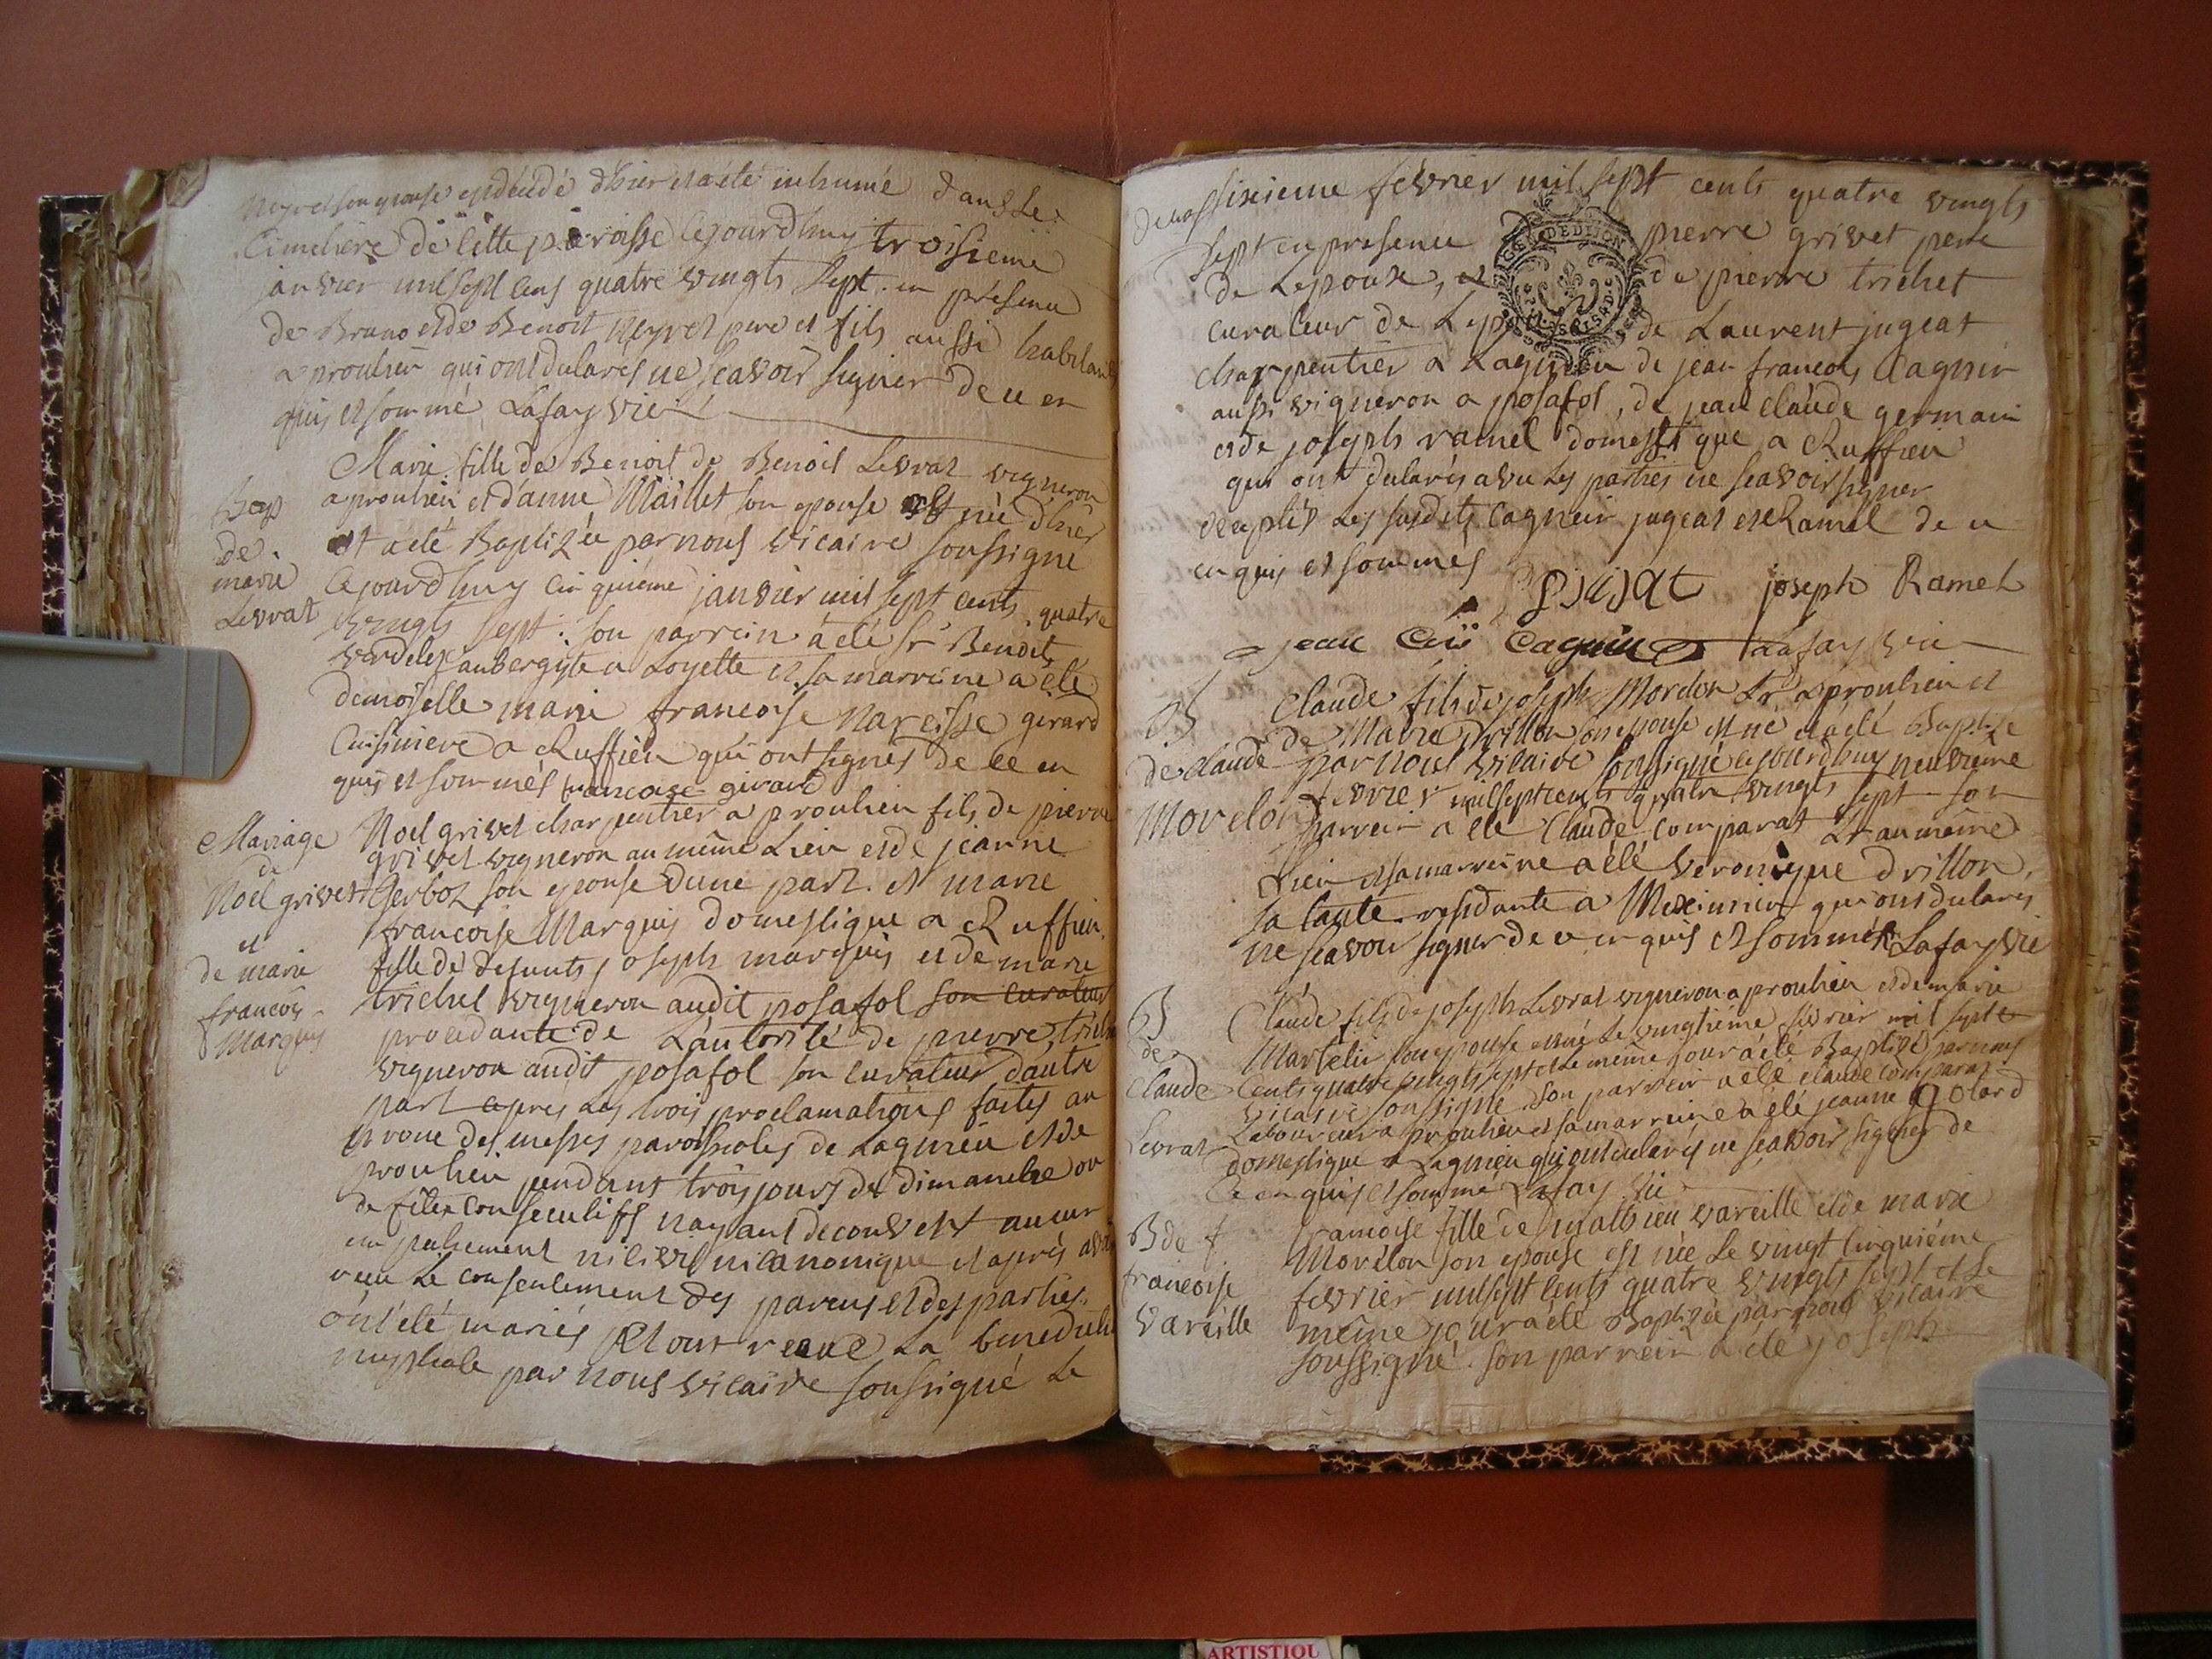 neyret son epouse est décédé d'hier et a été inhumé dans le
Cimetière de Cette paroisse Cejourdhuy troisieme
janvier mil sept cens quatre vingts sept. en présence
de Bruno et de Benoit Neyret pere et fils aussi habitans
a proulieu qui ont declarés ne scavoir signer de ce en
quis et sommé Lafay vic
Marie fille de Benoit de Benoit Levrat vigneron
a proulieu et d'anne Maillet son epouse est née d'hier
et a été Baptizée par nous vicaire soussigné
Cejourdhuy Cinquième janvier mil sept cents quatre
vingts sept. son parrein a été Sr Benoit
Verdelet aubergiste a Loyette et sa marreine a été
demoiselle marie francoise Narcisse gerard
Cuisiniere a Ruffieu qui ont signés de ce en
quis et sommés francoise girard
Bap
de
marie
Levrat
Mariage
de
Noël grivet
et
de marie
francois
Marquis
Noel grivet charpentier a proulieu fils de pierre
grivet vigneron au même Lieu et de jeanne
Gerboz son epouse dune part. et marie
francoise Marquis domestique a Ruffieu
fille de defunts joseph marquis et de marie
trichet vigneron audit posafol son curateur
procedante de L'autorité de pierre trichet
vigneron audit posafol son curateur d'autre
part apres Les trois proclamations faites au
prone des messes paroissiales de Lagnieu et de
proulieu pendant trois jours de dimanche ou
de fêtes consecutifs n'ayant decouvert aucun
empechement ni civil ni canonique et après avoir
reçu Le consentement des parens et des parties.
ont été mariés et ont reçue La benedicti
nuptiale par nous vicaire soussigné Le
sixieme fevrier mil sept cents quatre vingts
sept en presence pierre grivet pere
de Lepoux, et de pierre trichet
curateur de Lep de Laurent jugeat
charpentier a Lagnieu de jean francois Cagnin
aussi vigneron a posafol, de jean claude germain
et de joseph ramel domestique a Ruffieu
qui ont declarés avec Les parties ne scavoir signer
exceptés Les susdits Cagnin jugeat et Ramel de ce
en quis et sommés
joseph Ramel
jean Cagnin Lafay vic
B
de claude
Morelon
Claude fils de joseph Morelon Lr a proulieu et
de Marie Drillon son epouse est né et a été Baptisé
par nous vicaire soussigné cejourdhuy neuvième
fevrier mil sept cents quatre vingts sept son
parrein a été Claude comparat Lr au même
Lieu et sa marreine a été veronique drillon,
sa tante residante a Meximieux qui ont declarés
ne scavoir signer de ce en quis et sommés Lafay vic
B
de
Claude
Levrat
Claude fils de joseph Levrat vigneron a proulieu et de marie
Martelin son epouse est né Le vingtième fevrier mil sept
cents quatre vingts sept et Le même jour a été Baptisé par nous
vicaire soussigné son parrein a été claude comparat
Laboureur a proulieu et sa marreine a été jeanne golard
domestique a Lagnieu qui ont declarés ne scavoir signer de
Ce en quis et sommé Lafay vic
B de f
francoise
Vareille
francoise fille de mathieu vareille et de marie
Morélon son epouse est née Le vingt cinquiéme
fevrier mil sept cents quatre vingts sept et Le
même jour a été Baptizée par nous vicaire
soussigné. son parrein a été joseph
ARTISTIQU